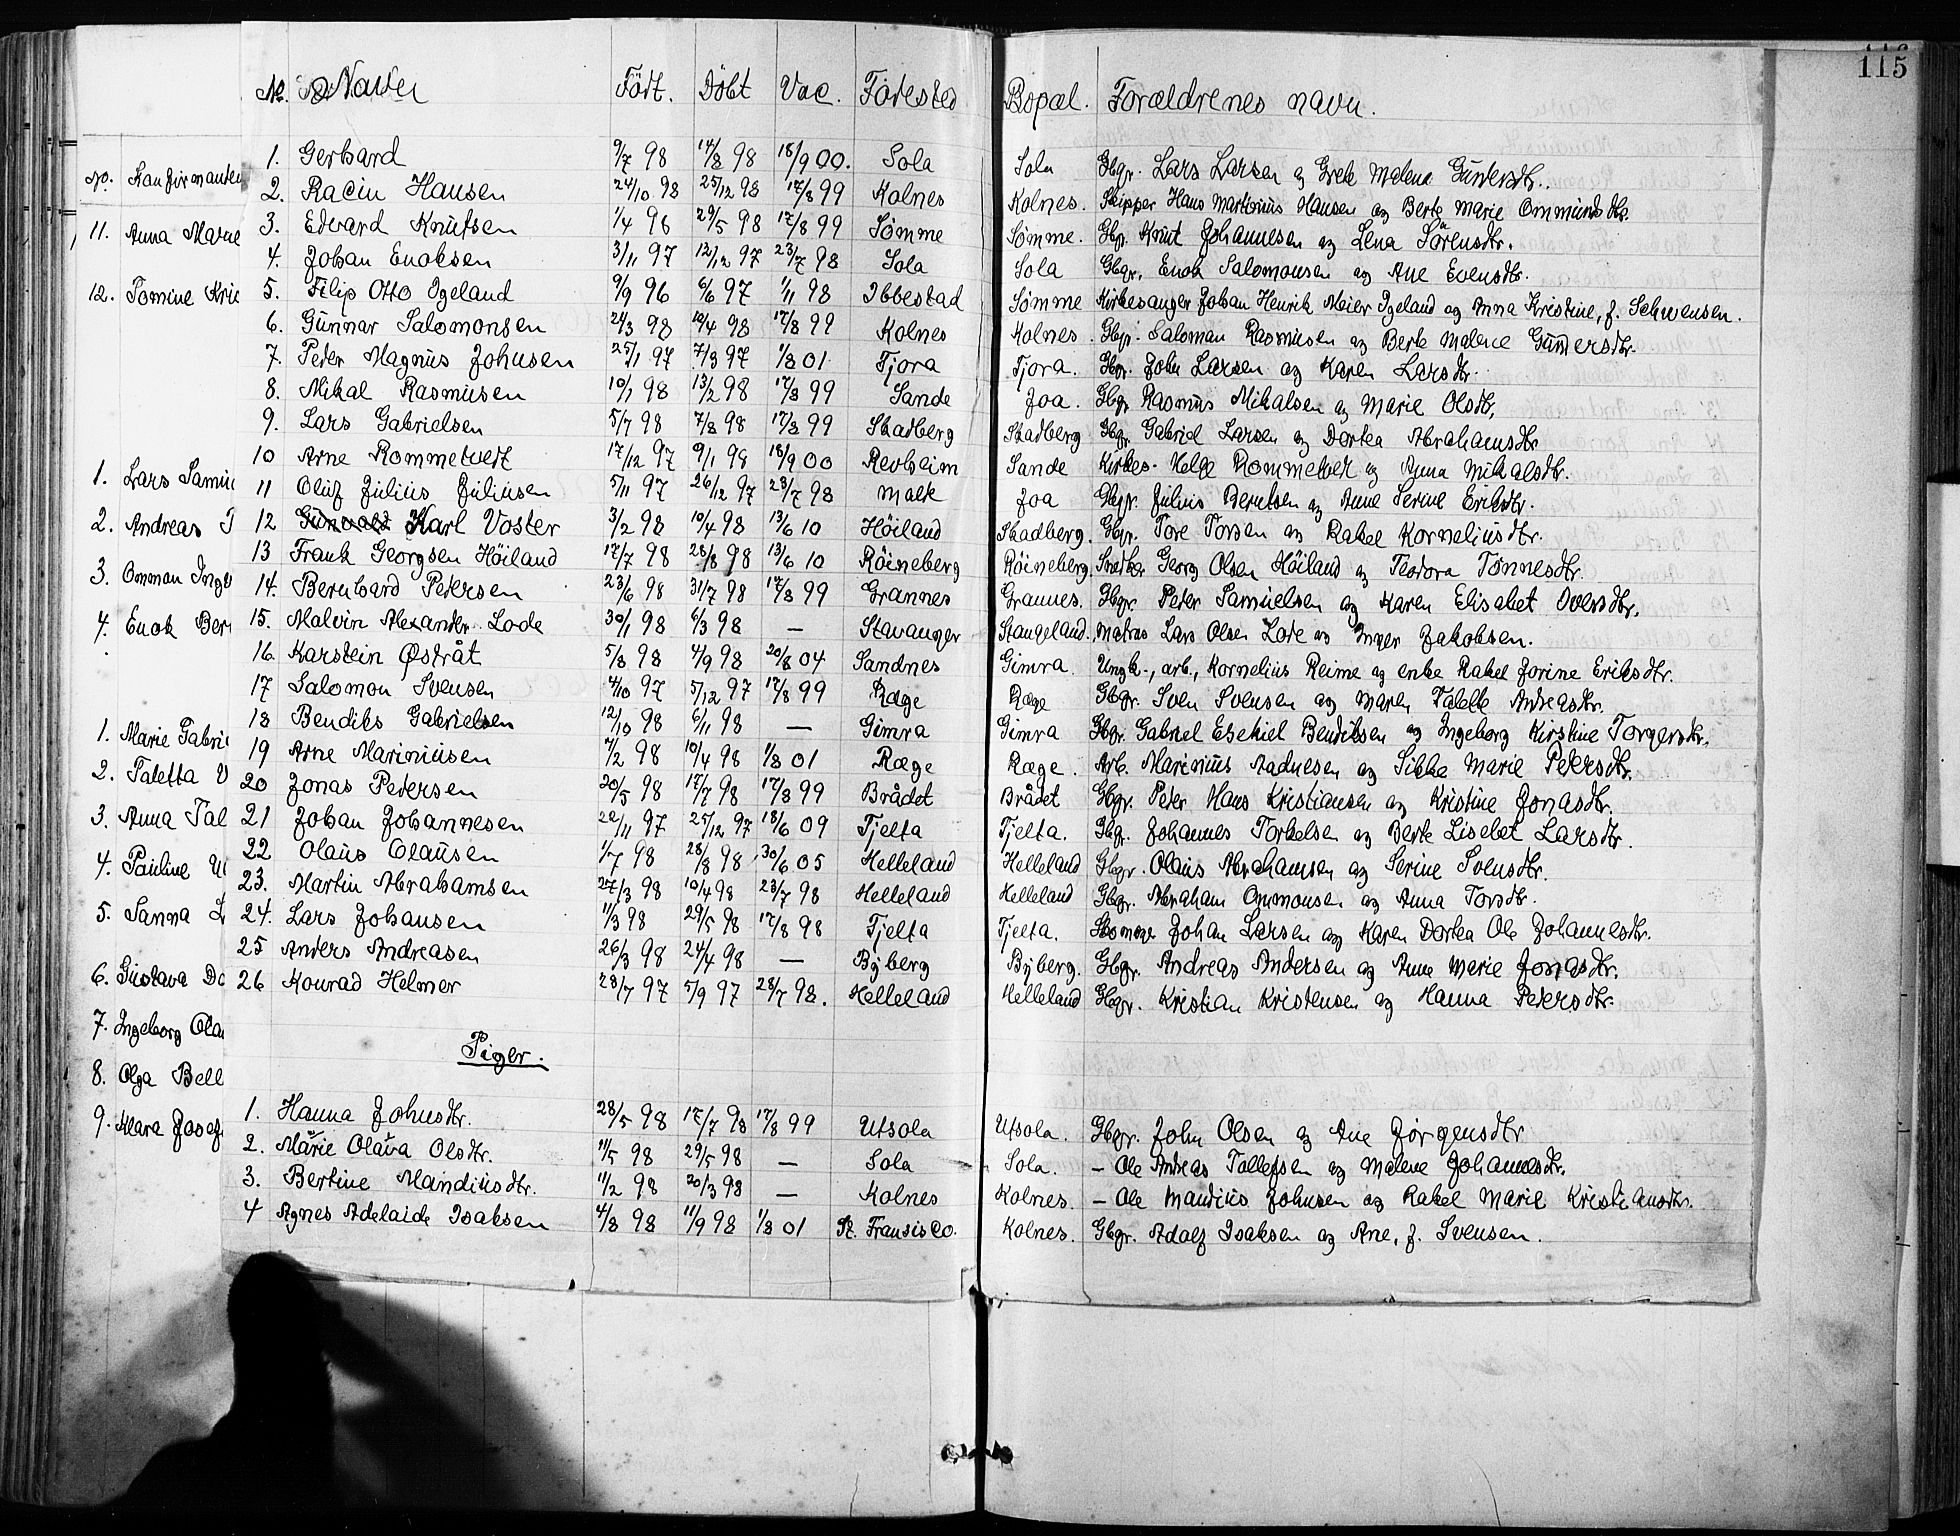 115
No. Navn Født. Döbt Vac. Födested Bopæl. Forældrenes navn.
1. Gerhard 9/7 98 14/8 98 18/9 00. Sola Sola Gbgr. Lars Larsen og Grete Malena
2. Racin Hansen 24/10 98 25/12 98 17/8 99 Kolnes Kolnes. Skipper Hans Martinius Hansen og Berte Marie Ommundsdtr.
3. Edvard Knutsen 1/4 96 29/5 98 17/8 99 Sømme Sømme. Gbr. Knut Johannesen og Lena Sörensdtr.
4. Johan Enoksen 3/11 97 12/12 97 23/7 98 Sola Sola Gbgr. Enok Salomonsen og Ane Evensdtr.
5. Filip Otto Igeland 9/9 96 6/6 97 1/11 98 Ibbestad Sømme Kirkesanger Johan Henrik Meier Igeland og Anna Kristine, f. Schwensen.
6. Gunnar Salomonsen 24/3 98 10/4 98 17/8 99 Kolnes Kolnes. Gbgr. Saloman Rasmusen og Berte Malene Gunnersdtr.
7. Peder Magnus Johnsen 25/1 97 7/3 97 1/8 01 Tjora Tjora. Gbgr. John Larsen og Karen Larsdtr.
8. Mikal Rasmusen 10/1 98 13/2 98 17/8 99 Sande Joa. Gbgr Rasmus Mikalsen og Marie Olsdtr,
9. Lars Gabrielsen 5/7 98 7/8 98 17/8 99 Skadberg Skadberg Gbgr. Gabriel Larsen og Dortea Abrahamsdtr
10 Arne Rommetvedt 17/12 97 9/1 98 18/9 00 Revheim Sande Kirkes. Helge og Anna Mikalsdtr.
11 Oluf Julius Juliusen 5/11 97 26/12 97 23/7 98 Malk Joa Gbgr. Julius Berntsen og Anne Serine Eriksdtr.
12 Gunvald Karl Voster 3/2 98 10/4 98 13/6 10 Höiland Skadberg. Gbgr. Tore Torsen og Rakel Korneliusdtr.
13 Frank Georgsen Höiland 17/7 98 28/8 98 13/6 10 Röineberg Röineberg. Snedker Georg Olsen Höiland og Teodora Tönnesdtr.
14. Bernhard Petersen 23/6 98 31/7 98 17/8 99 Grannes Grannes. Gbgr. Peter Samuelsen og Karen Elisabet
15. Malvin Alexander Lode 30/1 98 6/3 98 — Stavanger Stangeland. Matros Lars Olsen Lode og Inger Jakobsen.
16. Karstein Østråt 5/8 98 4/9 98 20/8 04 Sandnes Gimra. Ungk., arb., Kornelius Reime og enke Rakel Jorine Eriksdtr.
17 Salomon Svensen 4/10 97 5/12 97 17/8 99 Ræge Ræge Gbgr. Sven Svensen og Maren Talette Andreasdtr.
18 Bendiks Gabrielsen 12/10 98 6/11 98 — Gimra Gimra Gbgr. Gabriel Esekiel Bendiksen og Ingeborg Kirstine Torgersdtr.
19 Arne Mariniusen 7/2 98 10/4 98 1/8 01 Ræge Ræge. Arb. Marinius Aadnesen og Sikke Marie Petersdtr.
20 Jonas Petersen 20/5 98 17/7 98 17/8 99 Brådet Brådet Gbgr. Peter Hans Kristiansen og Kristine Jonasdtr.
21 Johan Johannesen 22/11 97 25/12 97 18/6 09 Tjelta Tjelta. Gbgr. Johannes Torkelsen og Berte Lisebet Larsdtr.
22 Olaus Olausen 1/7 98 28/8 98 30/6 05 Helleland Helleland Gbgr. Olaus Abrahamsen og Serine Svensdtr.
23. Martin Abrahamsen 27/3 98 10/4 98 23/7 98 Helleland Helleland Gbgr. Abraham Ommonsen og Anna Torsdtr.
24. Lars Johansen 11/3 98 29/5 98 17/8 98 Tjelta Tjelta. Johan Larsen og Karen Dortea Ole Johannesdtr.
25 Anders Andreasen 26/3 98 24/4 98 — Byberg Byberg. Gbgr. Andreas Andersen og Anne Marie Jonasdtr.
26 Konrad Helmer 28/7 97 5/9 97 23/7 98. Helleland Helleland Gbgr. Kristian Kristensen og Hanna Petersdtr.
Piger.
1. Hanna Johnsdtr. 28/5 98 17/7 98 17/8 99 Utsola Utsola. Gbgr. John Olsen og Ane Jörgensdtr
2. Marie Olava Olsdtr. 11/5 98 29/5 98 — Sola Sola. — Ole Andreas Tollefsen og Malene Johannesdtr.
3. Bertine Mandiusdtr. 11/2 98 20/3 98 — Kolnes Kolnes. — Ole Mandius Johnsen og Rakel Marie Kristiansdtr.
4 Agnes Adelaide Isaksen 4/8 98 11/9 98 1/8 01 St. Fransisco. Kolnes. Gbgr. Adolf Isaksen og Ane, f. Svensen.
No. Konfirmanten
11. Anna Marie
12. Tomine
1. Lars
2. Andreas
3. Omman
4. Enok
1. Marie
2. Taletta
3. Anna
4. Pauline
5. Sanna
6. Gustava
7. Ingeborg
8. Olga
9. Klara